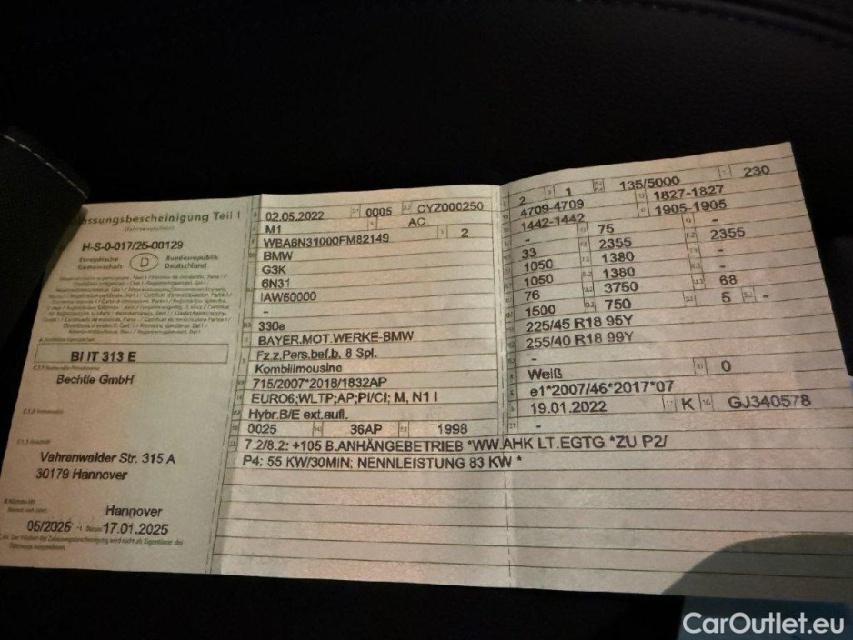 assungsbescheinigung Teil I
H-S-0-017/25-00129
Europäische Gemeinschaft D Bundesrepublik Deutschland
BI IT 313 E
Bechtle GmbH
Vahrenwalder Str. 315 A
30179 Hannover
Hannover
05/2025 17.01.2025
02.05.2022 0005 CYZ000250
M1 AC
WBA6N31000FM82149 2
BMW
G3K
6N31
IAW50000
-
330e
BAYER.MOT.WERKE-BMW
Fz.z.Pers.bef.b. 8 Spl.
Kombilimousine
715/2007*2018/1832AP
EURO6;WLTP;AP;PI/CI; M, N1 I
Hybr.B/E ext.aufl.
0025 36AP 1998
7.2/8.2: +105 B.ANHÄNGEBETRIEB *WW.AHK LT.EGTG *ZU P2/
P4: 55 KW/30MIN; NENNLEISTUNG 83 KW *
2 1 135/5000 230
4709-4709 1827-1827
1442-1442 1905-1905
- 75 -
33 2355 2355
1050 1380 -
1050 1380 -
76 3750 68
1500 750 5 -
225/45 R18 95Y
255/40 R18 99Y
-
Weiß 0
e1*2007/46*2017*07
19.01.2022 K GJ340578
-
CarOutlet.eu